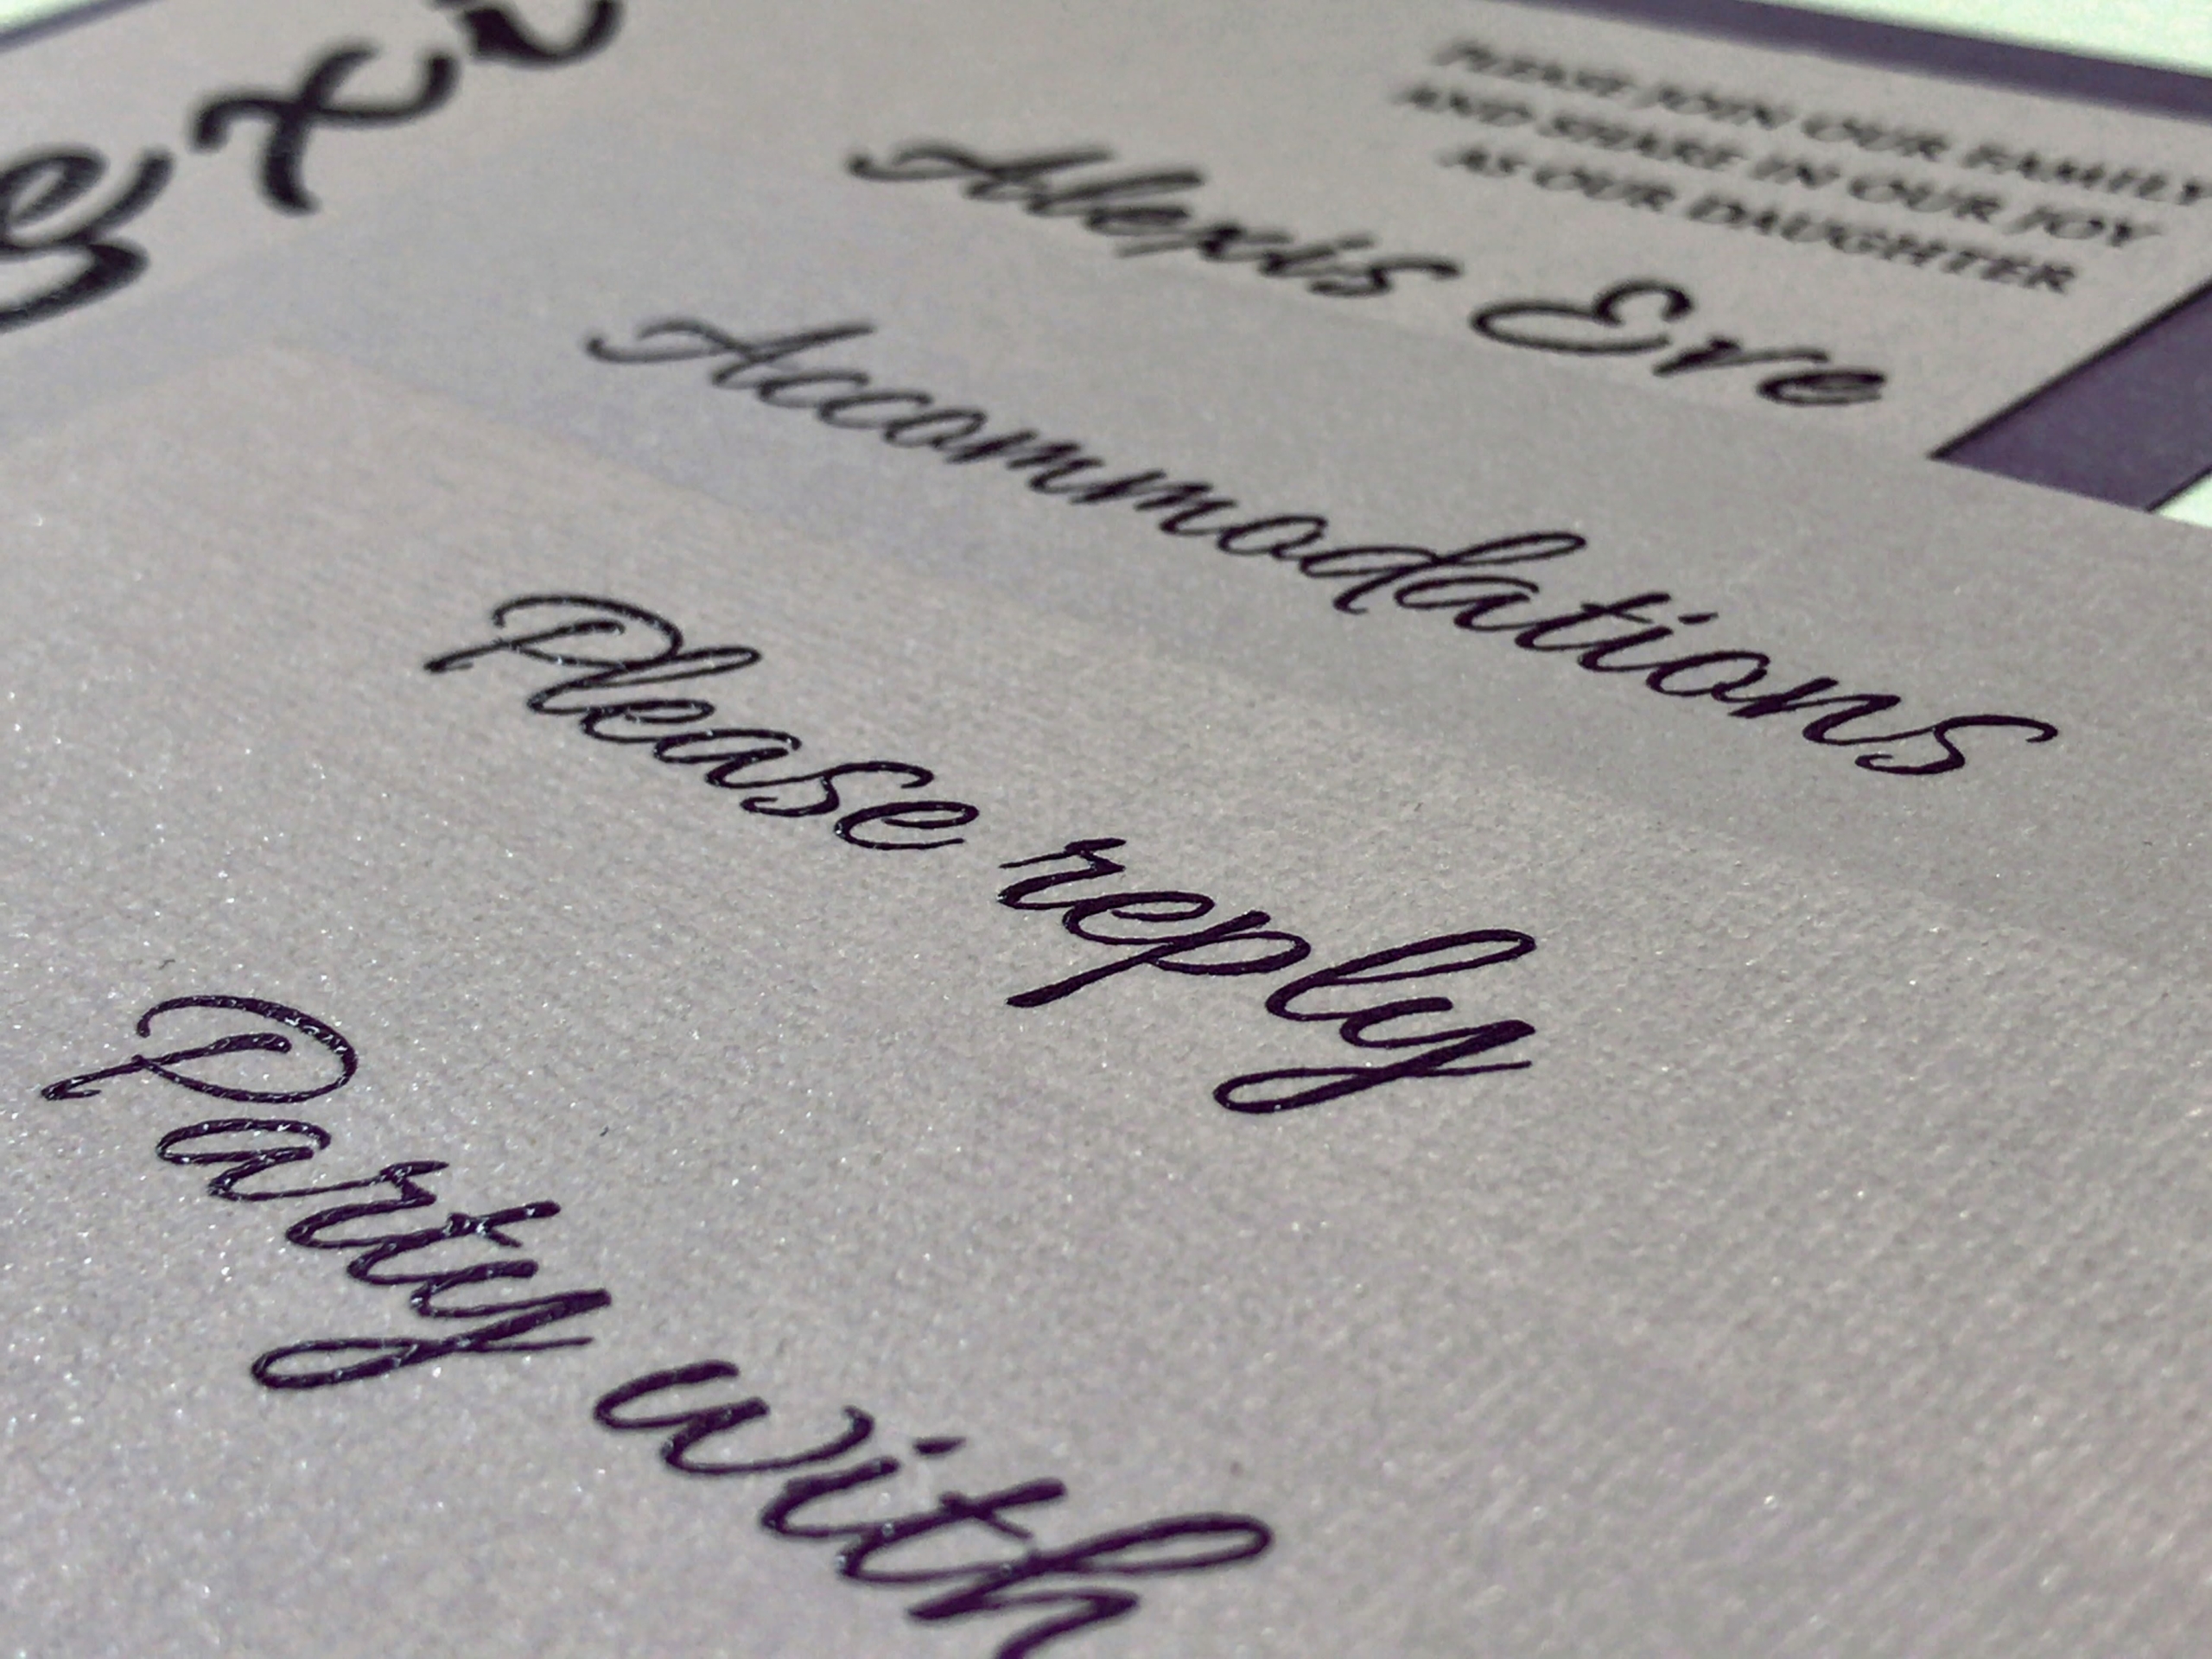 PLEASE JOIN OUR FAMILY
AND SHARE IN OUR JOY
AS OUR DAUGHTER
Alexis Eve
Accommodations
Please reply
Party with